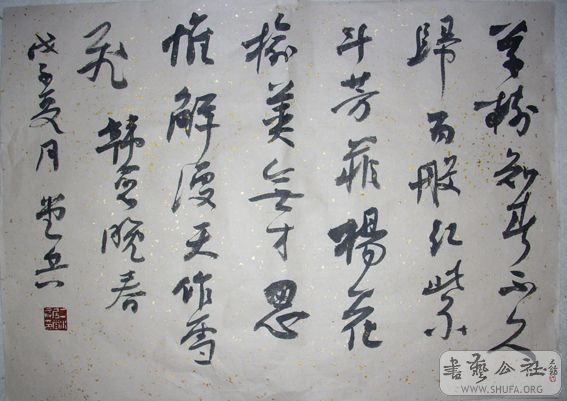 草樹知春不久
歸百般紅紫
斗芳菲楊花
榆莢無才思
惟解漫天作雪
飛 韓愈晚春
戊子夏月
書藝公社
WWW.SHUFA.ORG